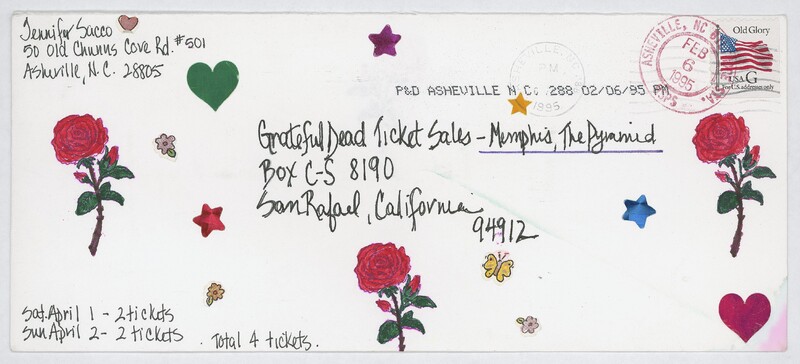 Jennifer Sacco
50 Old Chunns Cove Rd. #501
Asheville, N.C. 28805
ASHEVILLE, NC
FEB
6
1995
USPS
Old Glory
USA G
For U.S. addresses only
ASHEVILLE, NC
PM
1995
P&D ASHEVILLE N.C. 288 02/06/95 PM
Grateful Dead Ticket Sales - Memphis, The Pyramid
Box C-S 8190
San Rafael, California
94912
Sat. April 1 - 2 tickets
Sun April 2 - 2 tickets . Total 4 tickets.